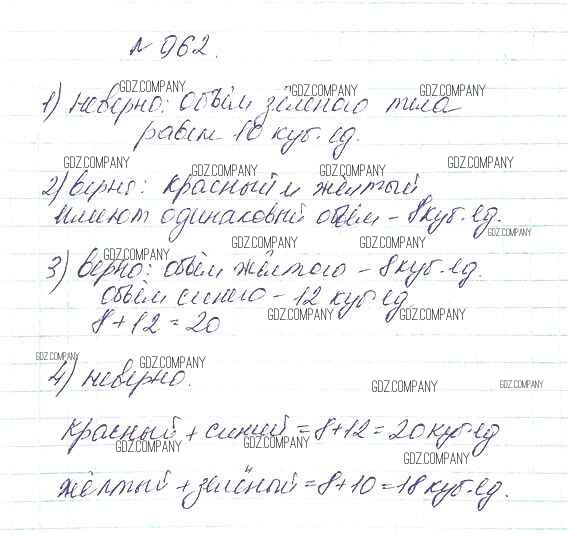 № 962.
GDZ.COMPANY GDZ.COMPANY GDZ.COMPANY
1) неверно: объём зелёного тела
равен 10 куб. ед.
GDZ.COMPANY GDZ.COMPANY GDZ.COMPANY GDZ.COMPANY
2) верно: красный и жёлтый
имеют одинаковый объём - 8 куб. ед.
GDZ.COMPANY GDZ.COMPANY GDZ.COMPANY GDZ.COMPANY
3) верно: объём жёлтого - 8 куб. ед.
объём синего - 12 куб. ед
GDZ.COMPANY GDZ.COMPANY
8 + 12 = 20
GDZ.COMPANY GDZ.COMPANY
4) неверно.
GDZ.COMPANY GDZ.COMPANY
красный + синий = 8 + 12 = 20 куб. ед
GDZ.COMPANY GDZ.COMPANY GDZ.COMPANY
жёлтый + зелёный = 8 + 10 = 18 куб. ед.